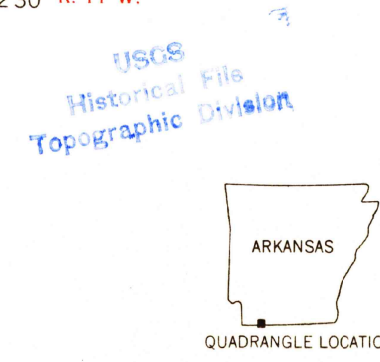 2'30" R. 11 W.
USGS
Historical File
Topographic Division
ARKANSAS
QUADRANGLE LOCATIO